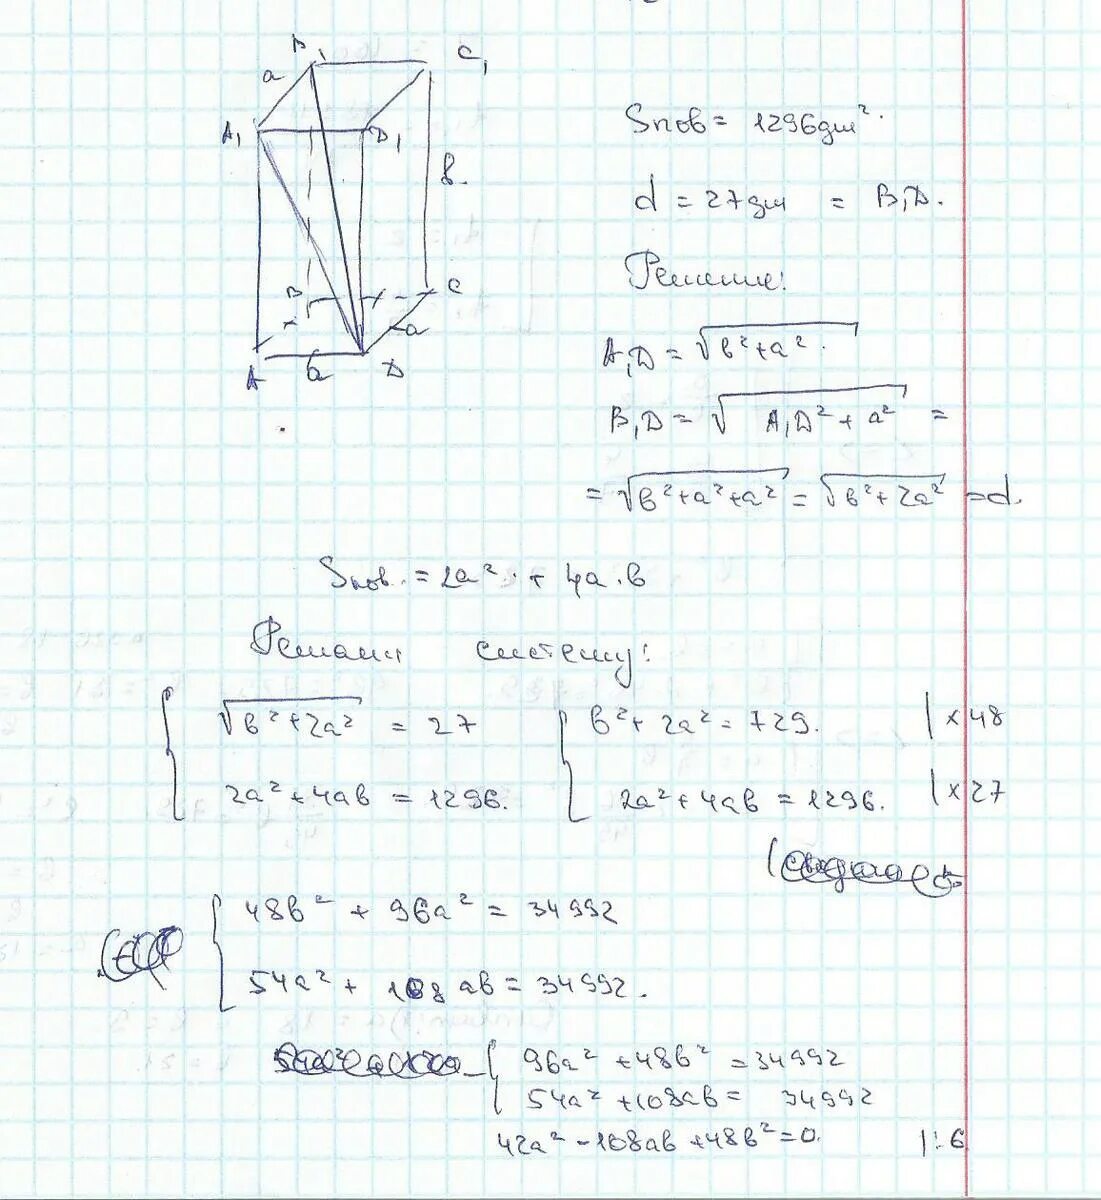 B₁ C₁
a
A₁ D₁
b
B C
a
A a D
Sпов = 1296 дм².
d = 27 дм = B₁D.
Решение:
A₁D = √(b² + a²).
B₁D = √(A₁D² + a²) =
= √(b² + a² + a²) = √(b² + 2a²) = d.
Sпов. = 2a² + 4a·b
Решаем систему:
{ √(b² + 2a²) = 27 { b² + 2a² = 729. | × 48
2a² + 4ab = 1296. 2a² + 4ab = 1296. | × 27
{ 48b² + 96a² = 34992
54a² + 108ab = 34992.
{ 96a² + 48b² = 34992
54a² + 108ab = 34992
42a² - 108ab + 48b² = 0. | : 6